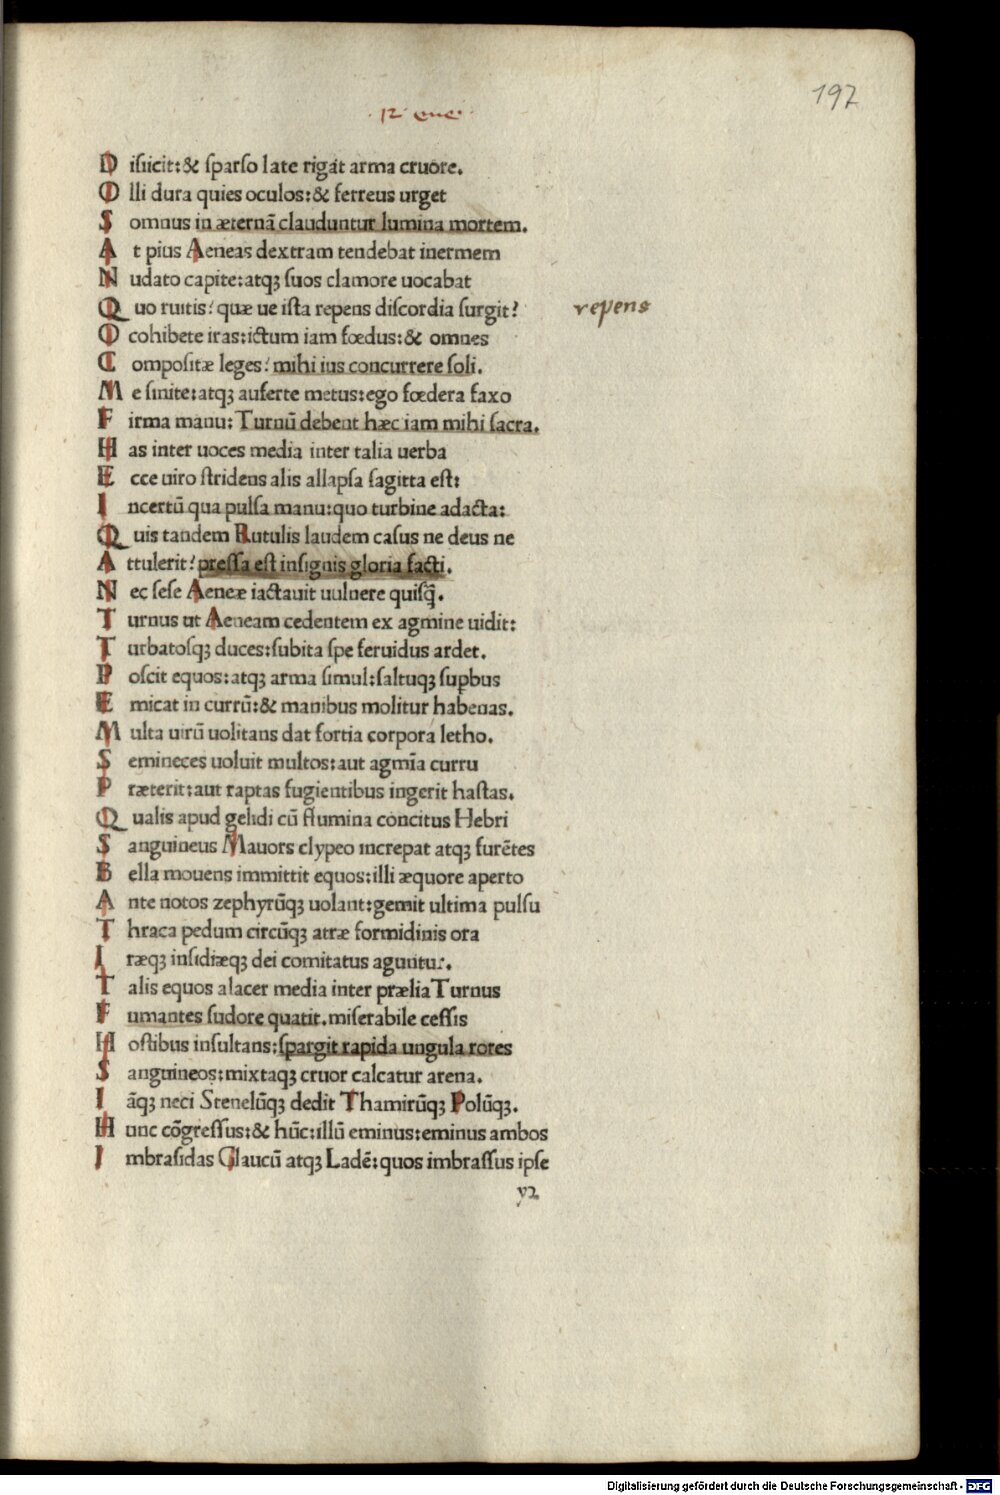 197
·12· ene·
D isiicit:& sparso late rigat arma cruore.
O lli dura quies oculos:& ferreus urget
S omnus in æternā clauduntur lumina mortem.
A t pius Aeneas dextram tendebat inermem
N udato capite:atqꝫ suos clamore uocabat
Q uo ruitis? quæ ue ista repens discordia surgit?
repens
O cohibete iras:ictum iam fœdus:& omnes
C ompositæ leges? mihi ius concurrere soli.
M e sinite:atqꝫ auferte metus:ego fœdera faxo
F irma manu: Turnū debent hæc iam mihi sacra.
H as inter uoces media inter talia uerba
E cce uiro stridens alis allapsa sagitta est:
I ncertū qua pulsa manu:quo turbine adacta:
Q uis tandem Rutulis laudem casus ne deus ne
A ttulerit? pressa est insignis gloria facti.
N ec sese Aeneæ iactauit uulnere quisq̄.
T urnus ut Aeneam cedentem ex agmine uidit:
T urbatosqꝫ duces:subita spe feruidus ardet.
P oscit equos:atqꝫ arma simul:saltuqꝫ suꝑbus
E micat in currū:& manibus molitur habenas.
M ulta uirū uolitans dat fortia corpora letho.
S emineces uoluit multos:aut agmīa curru
P ræterit:aut raptas fugientibus ingerit hastas.
Q ualis apud gelidi cū flumina concitus Hebri
S anguineus Mauors clypeo increpat atqꝫ furētes
B ella mouens immittit equos:illi æquore aperto
A nte notos zephyrūqꝫ uolant:gemit ultima pulsu
T hraca pedum circūqꝫ atræ formidinis ora
I ræqꝫ insidiæqꝫ dei comitatus aguntur.
T alis equos alacer media inter prælia Turnus
F umantes sudore quatit.miserabile cessis
H ostibus insultans:spargit rapida ungula rores
S anguineos:mixtaqꝫ cruor calcatur arena.
I āqꝫ neci Stenelūqꝫ dedit Thamirūqꝫ Polūqꝫ.
H unc cōgressus:& hūc:illū eminus:eminus ambos
I mbrasidas Glaucū atqꝫ Ladē:quos imbrassus ipse
y2
Digitalisierung gefördert durch die Deutsche Forschungsgemeinschaft - DFG